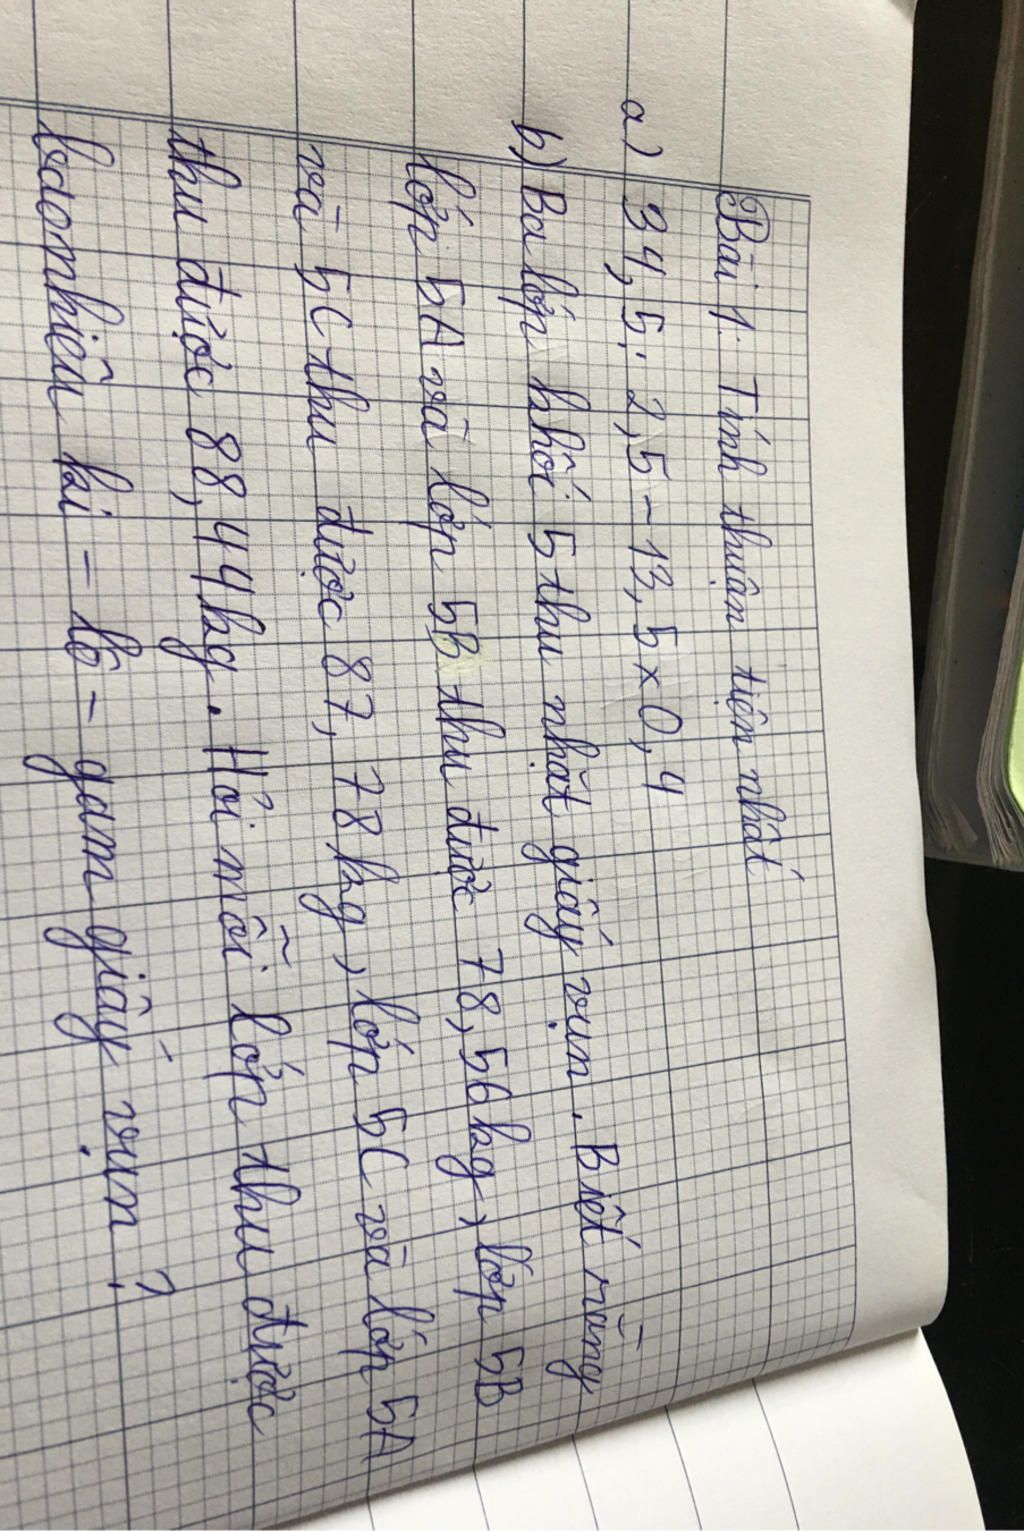 Bài 1. Tính thuận tiện nhất
a) 34,5 : 2,5 - 13,5 x 0,4
b) Ba lớp khối 5 thu nhặt giấy vụn. Biết rằng
lớp 5A và lớp 5B thu được 78,56kg, lớp 5B
và 5C thu được 87,78kg, lớp 5C và lớp 5A
thu được 88,44kg. Hỏi mỗi lớp thu được
baonhiêu ki-lô-gam giấy vụn?